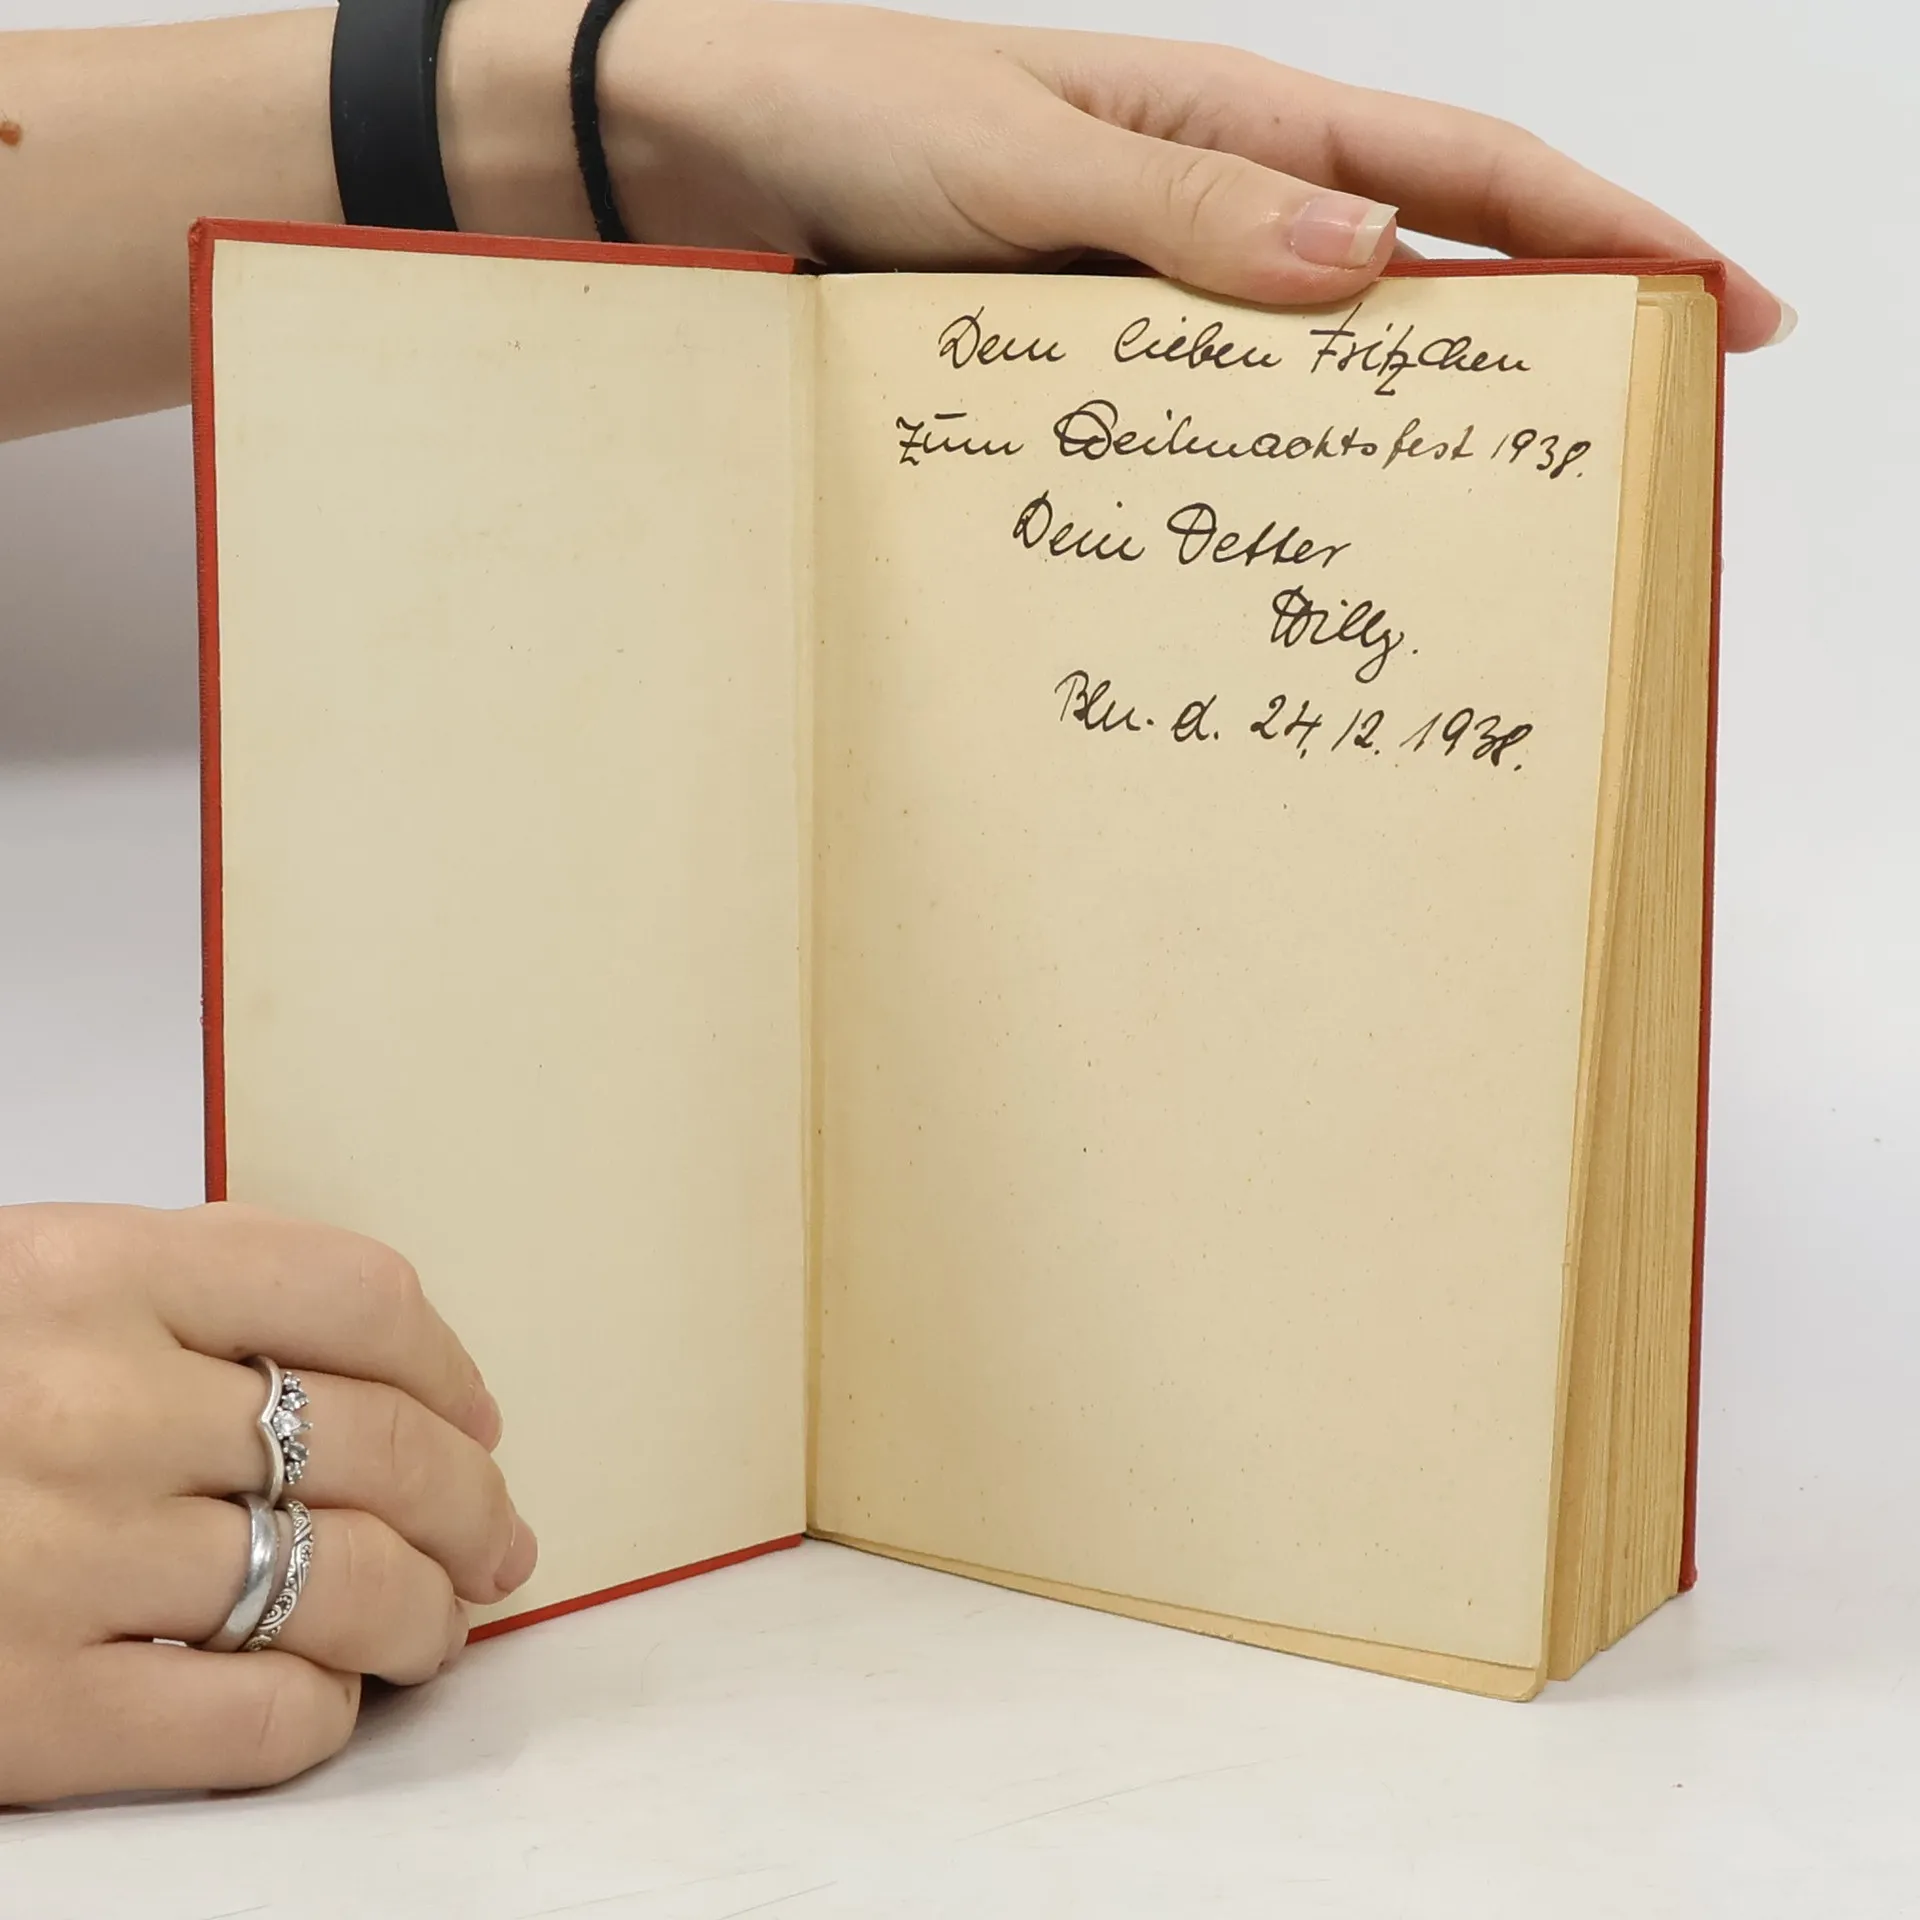 Dem lieben Fritzchen
zum Weihnachtsfest 1938.
Dein Vetter
Willy.
Bln. d. 24.12.1938.